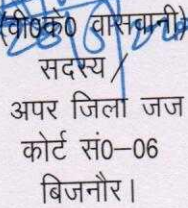 (वी०के० वासवानी)
सदस्य /
अपर जिला जज
कोर्ट सं०-06
बिजनौर।